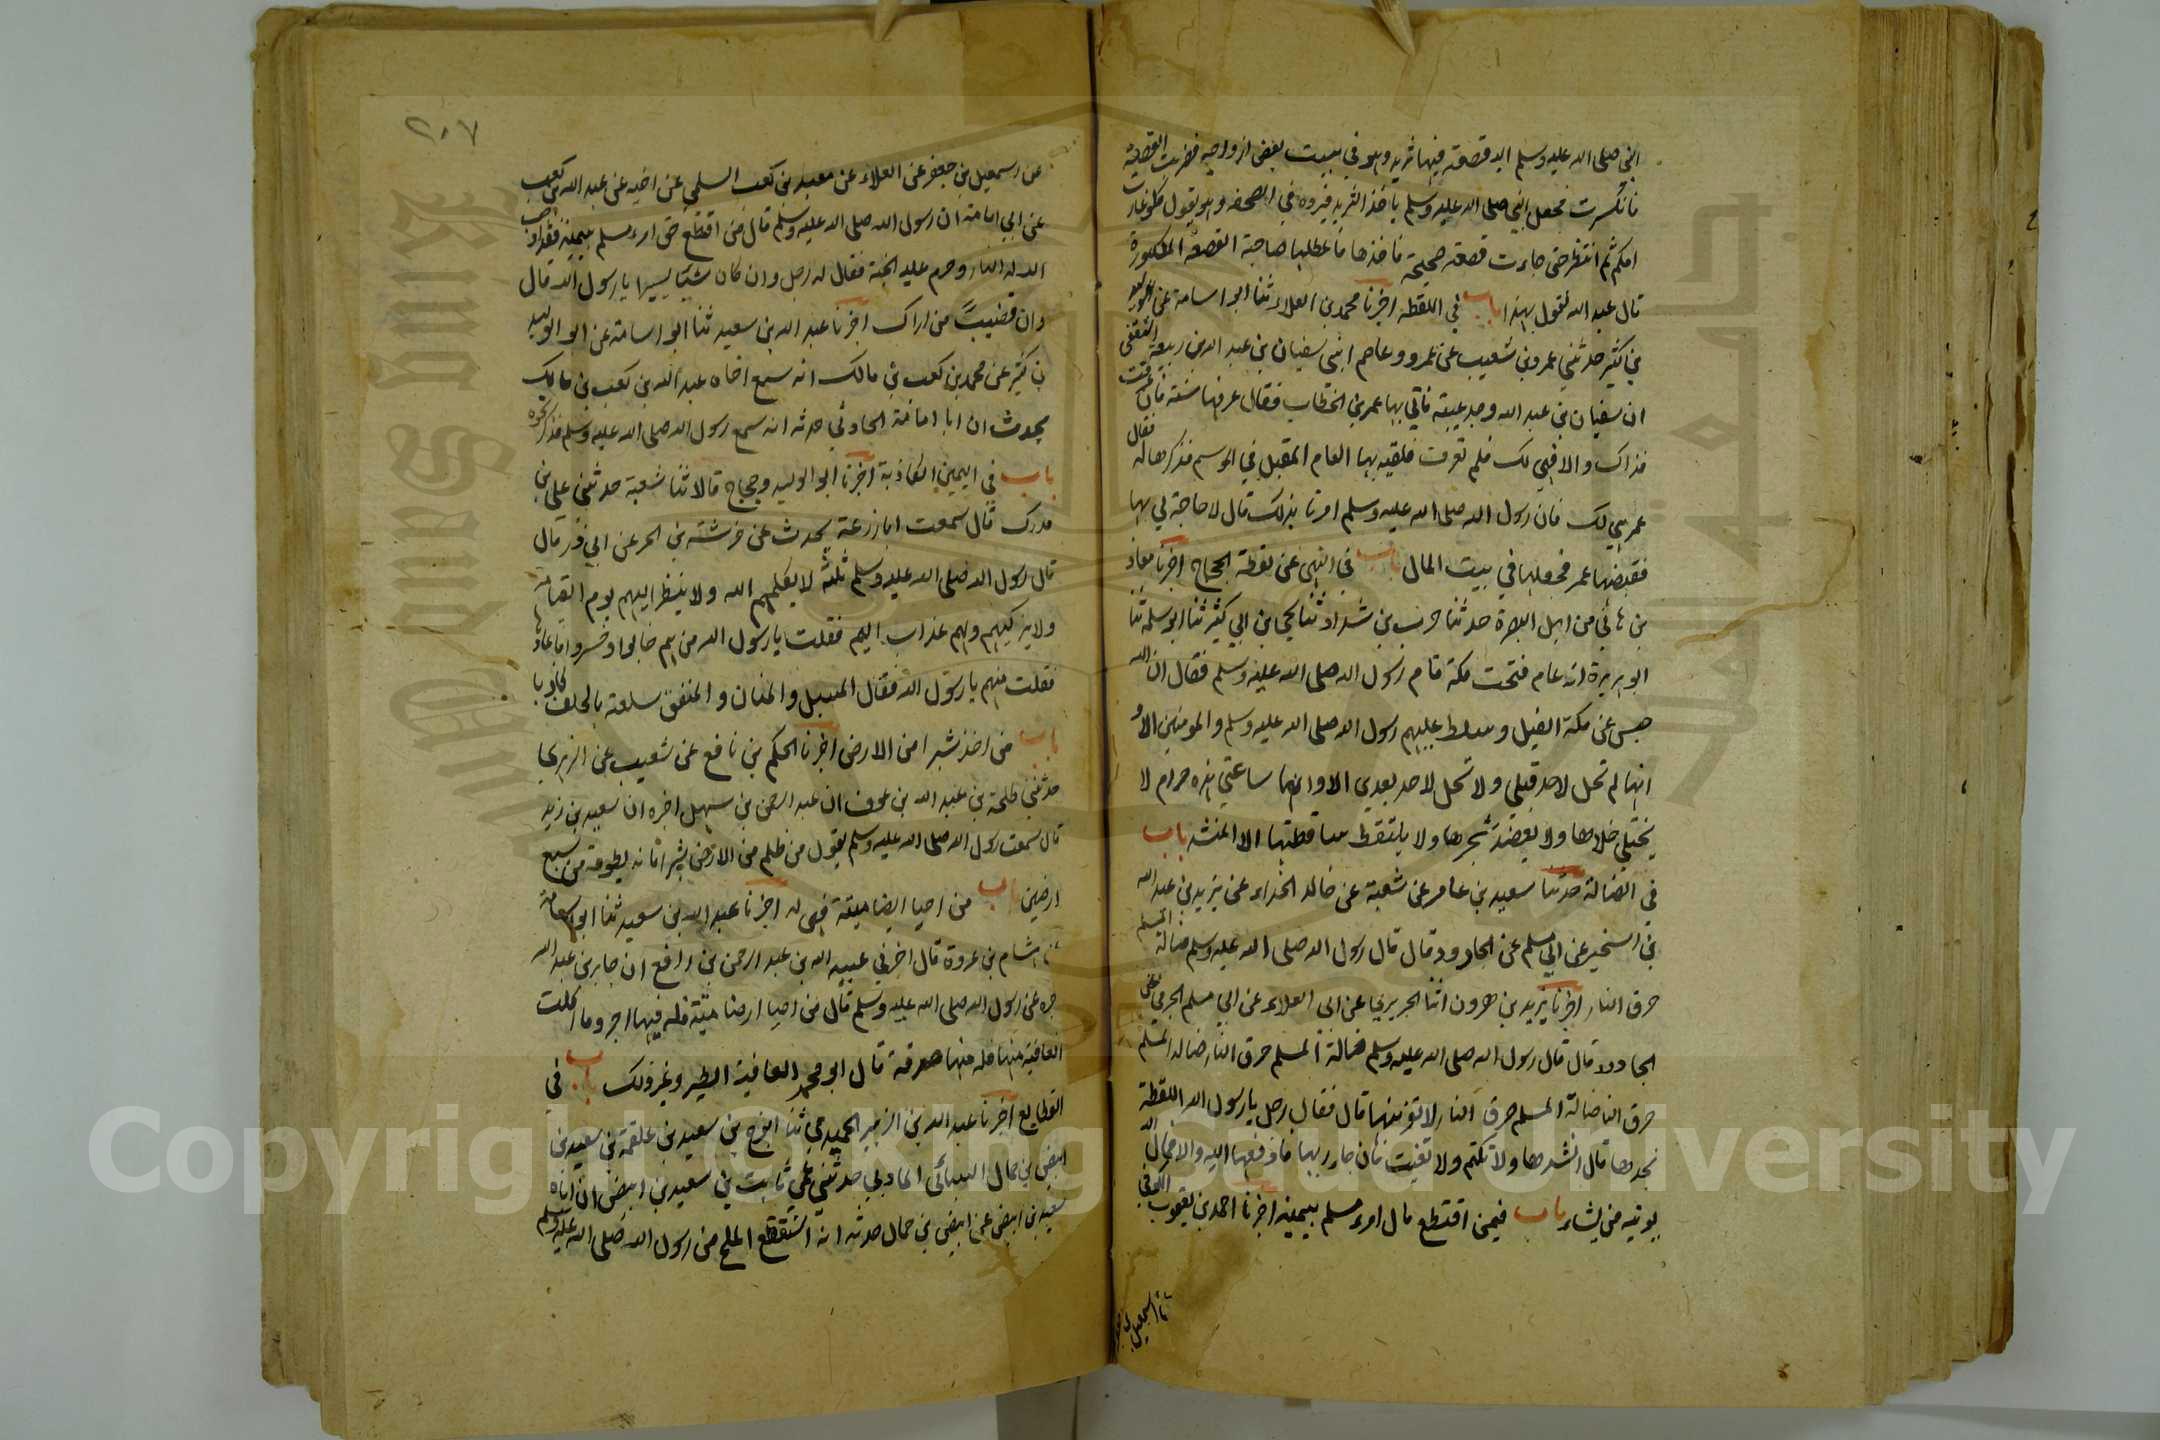 النبي صلى الله عليه وسلم اليه قصعة فيها ثريد وهو في بيت بعض ازواجه فضربت القصعة
فانكسرت فجعل النبي صلى الله عليه وسلم ياخذ الثريد فيرده في الصحفه وهو يقول كلوا غارت
امكم ثم انتظر حتى جاءت قصعة صحيحة فاخذها فاعطاها صاحبة القصعة المكسورة
قال عبد الله نقول بهذا باب في اللقطه اخبرنا محمد بن العلاء ثنا ابو اسامة عن الوليد
بن كثير حدثني عمرو بن شعيب عن عمرو وعاصم ابني سفيان بن عبد الله بن ربيعة الثقفي
ان سفيان بن عبد الله وجد عيبة فاتي بها عمر بن الخطاب فقال عرفها سنة فان عرفت
فذاك والا فهي لك فلم تعرف فلقيه بها العام المقبل في الموسم فذكرها له فقال
عمر هي لك فان رسول الله صلى الله عليه وسلم امرنا بذلك قال لا حاجة لي بها
فقبضها عمر فجعلها في بيت المال باب في النهي عن لقطة الحجاج اخبرنا معاذ
بن هانئ من اهل البصرة حدثنا حرب بن شداد ثنا يحي بن ابي كثير ثنا ابو سلمة ثنا
ابو هريرة انه عام فتحت مكة قام رسول الله صلى الله عليه وسلم فقال ان الله
حبس عن مكة الفيل وسلط عليهم رسول الله صلى الله عليه وسلم والمومنين الا و
انها لم تحل لاحد قبلي ولا تحل لاحد بعدي الا وانها ساعتي هذه حرام لا
يختلى خلاها ولا يعضد شجرها ولا يلتقط ساقطتها الا لمنشد باب
في الضالة حدثنا سعيد بن عامر عن شعبة عن خالد الحذاء عن يزيد بن عبد الله
بن الشخير عن ابي مسلم عن الجارود قال قال رسول الله صلى الله عليه وسلم ضالة المسلم
حرق النار اخبرنا يزيد بن هرون انا الجريري عن ابي العلاء عن ابي مسلم الجرمي عن
الجارود قال قال رسول الله صلى الله عليه وسلم ضالة المسلم حرق النار ضالة المسلم
حرق النا ضالة المسلم حرق النار لا تقربنها قال فقال رجل يا رسول الله اللقطة
نجدها قال انشدها ولا تكتم ولا تغيب فان جاء ربها فادفعها اليه والا فمال الله
يوتيه من يشاء باب فيمن اقتطع مال امرء مسلم بيمينه اخبرنا احمد بن يعقوب الكوفي
ثنا اسمعيل
٢٠٧
عن اسمعيل بن جعفر عن العلاء عن معبد بن كعب السلمي عن اخيه عن عبد الله بن كعب
عن ابي امامة ان رسول الله صلى الله عليه وسلم قال من اقتطع حق امرء مسلم بيمينه فقد اوجب
الله له النار وحرم عليه الجنة فقال له رجل وان كان شيئا يسيرا يا رسول الله قال
وان قضيبا من اراك اخبرنا عبد الله بن سعيد ثنا ابو اسامة عن ابو الوليد
بن كثير عن محمد بن كعب بن مالك انه سمع اخاه عبد الله بن كعب بن مالك
يحدث ان ابا امامة الحارثي حدثه انه سمع رسول الله صلى الله عليه وسلم فذكر نحوه
باب في اليمين الكاذبة اخبرنا ابو الوليد وحجاج قالا ثنا شعبة حدثني علي بن
مدرك قال سمعت ابا زرعة يحدث عن خرشة بن الحر عن ابي ذر قال
قال رسول الله صلى الله عليه وسلم ثلثة لا يكلمهم الله ولا ينظر اليهم يوم القيامة
ولا يزكيهم ولهم عذاب اليم فقلت يا رسول الله من هم خابوا وخسروا فاعادها
فقلت منهم يا رسول الله فقال المسبل والمنان والمنفق سلعته بالحلف كاذبا
باب من اخذ شبرا من الارض اخبرنا الحكم بن نافع عن شعيب عن الزهري
حدثني طلحة بن عبد الله بن عوف ان عبد الرحمن بن سهل اخبره ان سعيد بن زيد
قال سمعت رسول الله صلى الله عليه وسلم يقول من ظلم من الارض شبرا فانه يطوقه من سبع
ارضين باب من احيا ارضا ميتة فهي له اخبرنا عبد الله بن سعيد ثنا ابو اسامة
عن هشام بن عروة قال اخبرني عبيد الله بن عبد الرحمن بن رافع ان جابر بن عبد الله
اخبره عن رسول الله صلى الله عليه وسلم قال من احيا ارضا ميتة فله فيها اجر وما اكلت
العافية منها فله منها صدقة قال ابو محمد العافية الطير وغير ذلك باب في
القطايع اخبرنا عبد الله بن الزبير الحميدي ثنا الفرج بن سعيد بن علقمة بن سعيد بن
ابيض بن حمال السبائي الماربي حدثني عمي ثابت بن سعيد بن ابيض ان اباه
سعيد بن ابيض عن ابيض بن حمال حدثه انه استقطع الملح من رسول الله صلى الله عليه وسلم
Copyright © King Saud University